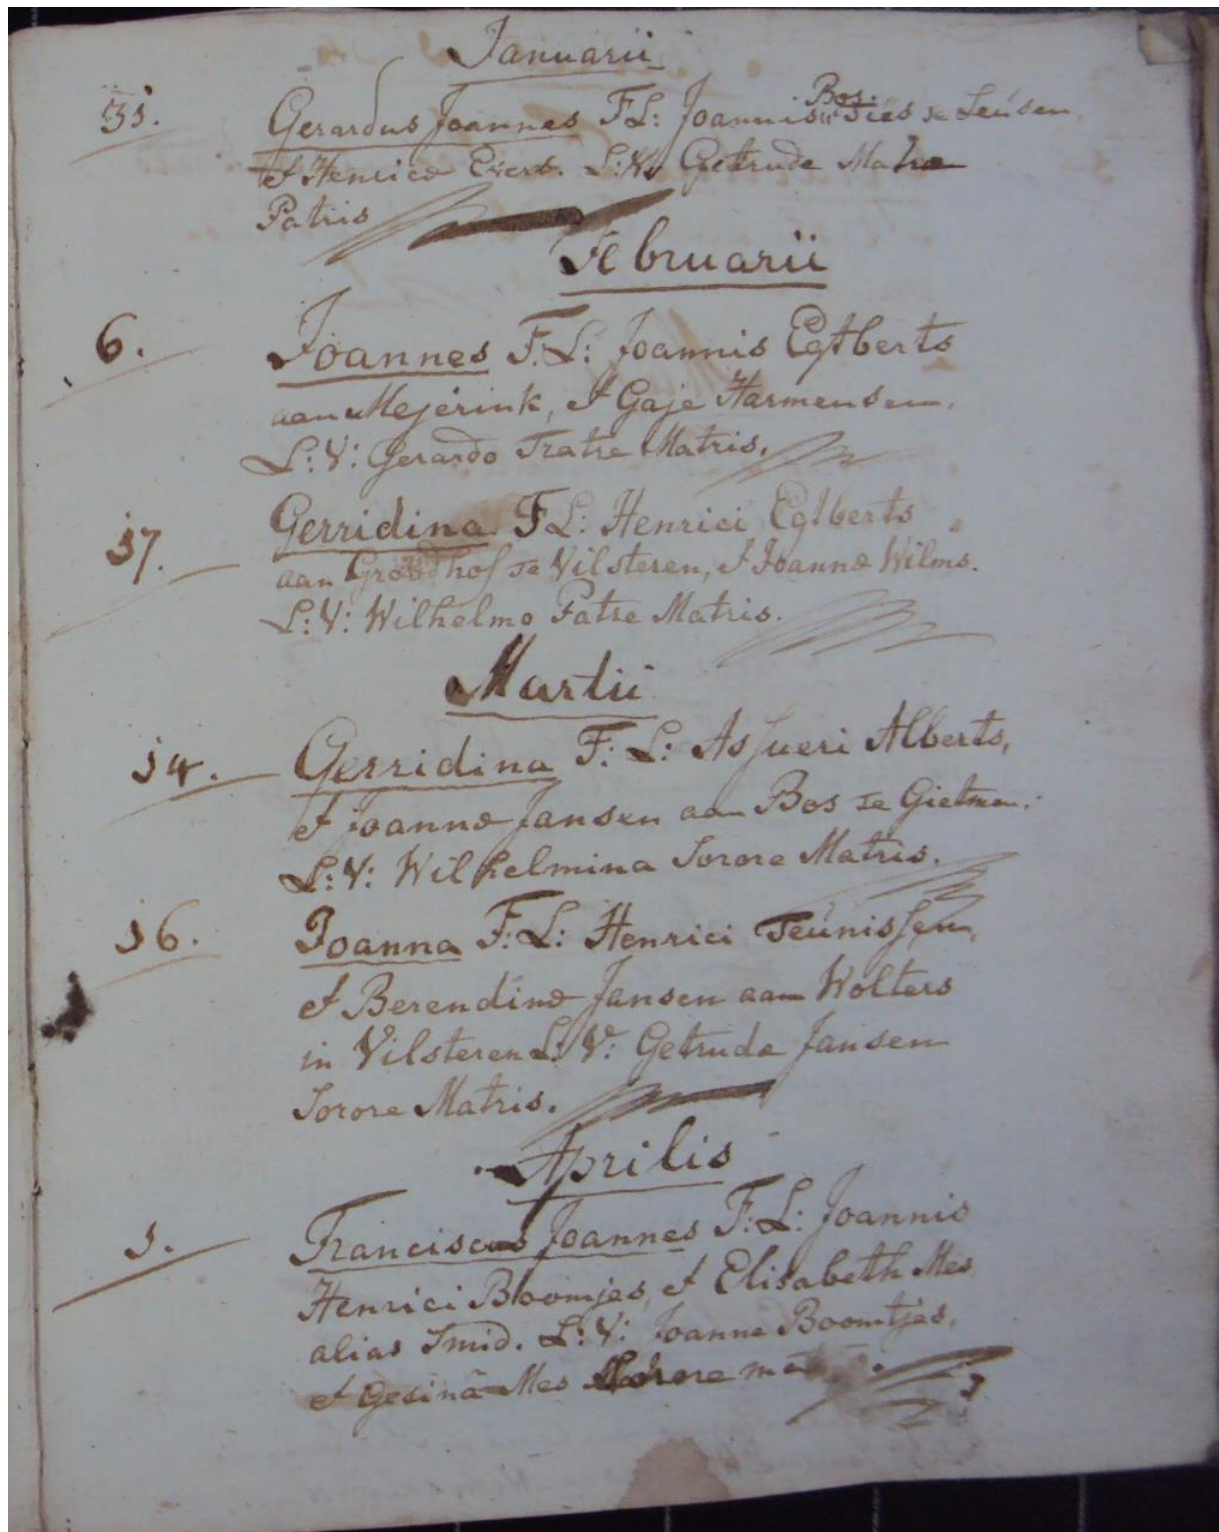 Januarii
31. Gerardus Joannes F L: Joannis Bos. Ties te Leúsen
et Henricæ Everts. L: V: Getrude Matre
Patris
Februarii
6. Joannes F. L: Joannis Egtberts
aan Mejerink, et Gaje Harmensen.
L: V: Gerardo Fratre Matris.
17. Gerridina F L: Henrici Egtberts
aan Groothof te Vilsteren, et Joannæ Wilms.
L: V: Wilhelmo Patre Matris.
Martii
14. Gerridina F: L: Assueri Alberts,
et Joannæ Jansen aan Bos te Gietmen.
L: V: Wilhelmina Sorore Matris.
16. Joanna F: L: Henrici Teúnissen,
et Berendinæ Jansen aan Wolters
in Vilsteren L: V: Getruda Jansen
Sorore Matris.
Aprilis
1. Franciscus Joannes F: L: Joannis
Henrici Boomjes, et Elisabeth Mes
alias Smid. L: V: Joanne Boomtjes,
et Gesinâ Mes